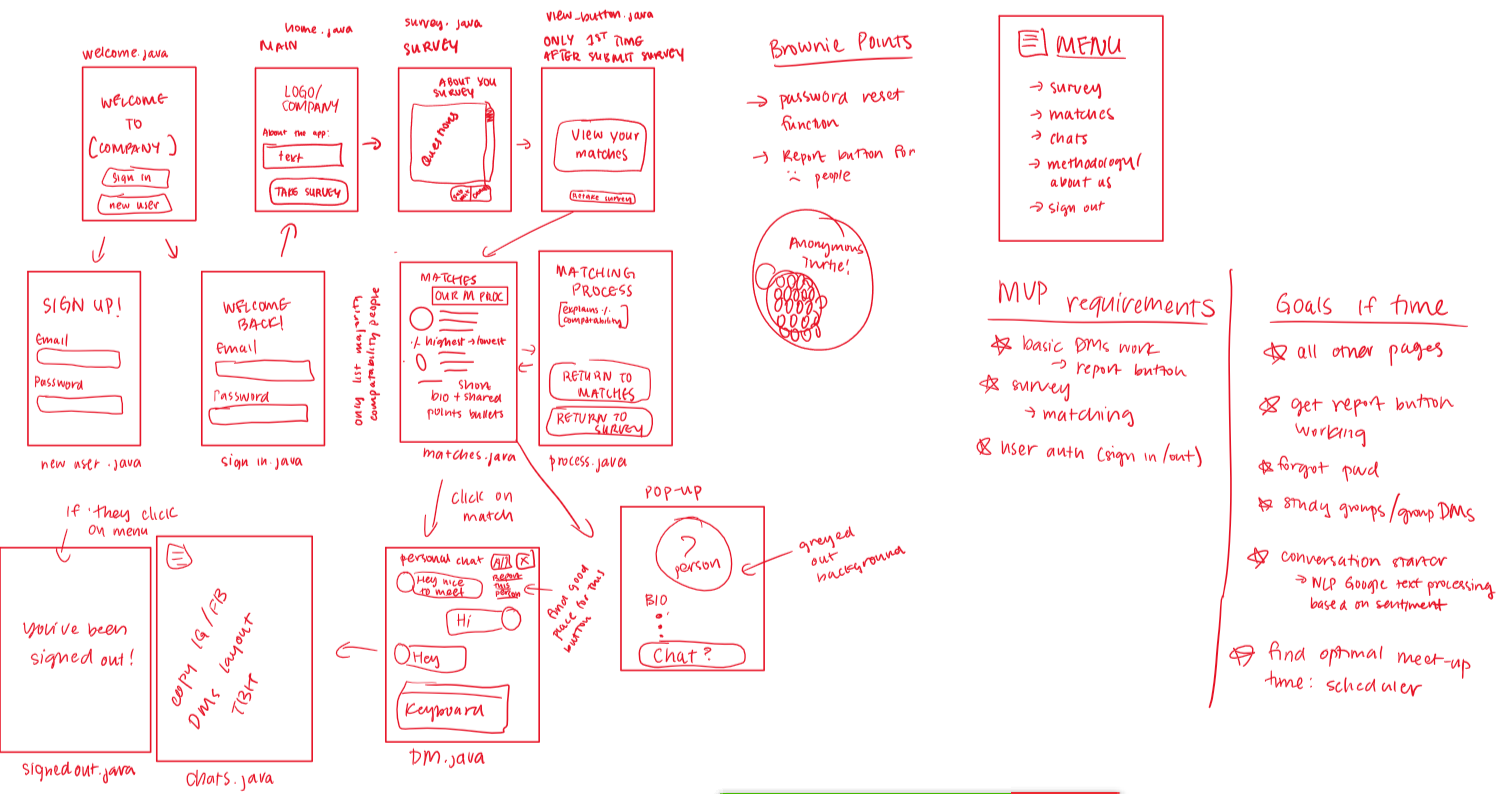 welcome.java
WELCOME
TO
[COMPANY]
sign in
new user
home.java
MAIN
LOGO/
COMPANY
About the app:
text
TAKE SURVEY
survey.java
SURVEY
ABOUT YOU
SURVEY
Questions
view_button.java
ONLY 1ST TIME
AFTER SUBMIT SURVEY
View your
matches
Retake survey
SIGN UP!
Email
Password
new user .java
WELCOME
BACK!
Email
Password
sign in.java
only list majority
compatability people
MATCHES
OUR M PROC
·/· highest → lowest
short
bio + shared
points bullets
matches.java
MATCHING
PROCESS
[explains ·/·
compatability]
RETURN TO
MATCHES
RETURN TO
SURVEY
process.java
If they click
on menu
You've been
signed out!
signedout.java
copy IG/FB
DMs layout
TBH
chats.java
click on
match
personal chat
X
Report
this
person
Hey nice
to meet
Hi
Hey
Keyboard
DM.java
find good
place for this
button
POP-UP
?
person
BIO
Chat?
greyed
out
background
Brownie Points
→ password reset
function
→ Report button for
:( people
Anonymous
Turtle!
MENU
→ survey
→ matches
→ chats
→ methodology/
about us
→ sign out
MVP requirements
☆ basic DMs work
→ report button
☆ survey
→ matching
☆ user auth (sign in/out)
Goals if time
☆ all other pages
☆ get report button
working
☆ forgot pwd
☆ study groups/group DMs
☆ conversation starter
→ NLP Google text processing
based on sentiment
☆ find optimal meet-up
time: scheduler